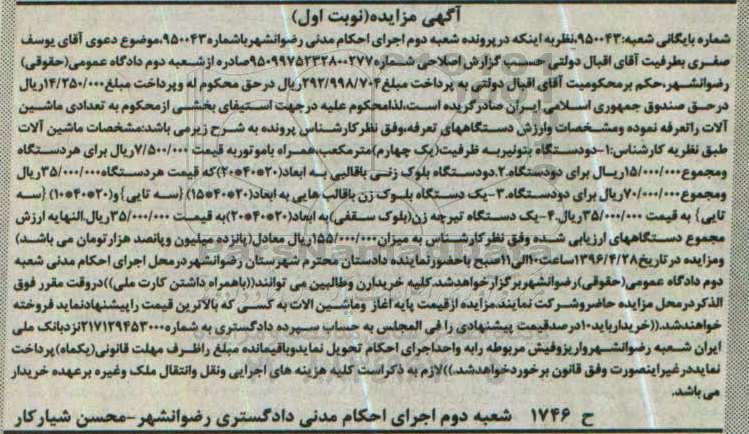 آگهی مزایده(نوبت اول)
شماره بایگانی شعبه:۹۵۰۰۴۳،نظربه اینکه درپرونده شعبه دوم اجرای احکام مدنی رضوانشهرباشماره۹۵۰۰۴۳،موضوع دعوی آقای یوسف
صفری بطرفیت آقای اقبال دولتی حسب گزارش اصلاحی شماره۹۵۰۹۹۷۵۲۳۲۸۰۰۲۷۷صادره ازشعبه دوم دادگاه عمومی(حقوقی)
رضوانشهر،حکم برمحکومیت آقای اقبال دولتی به پرداخت مبلغ۲۹۲/۹۹۸/۷۰۴ریال درحق محکوم له وپرداخت مبلغ۱۴/۲۵۰/۰۰۰ریال
درحق صندوق جمهوری اسلامی ایران صادرگریده است،لذامحکوم علیه درجهت استیفای بخشی ازمحکوم به تعدادی ماشین
آلات راتعرفه نموده ومشخصات وارزش دستگاههای تعرفه،وفق نظرکارشناس پرونده به شرح زیرمی باشد:مشخصات ماشین آلات
طبق نظریه کارشناس:۱-دودستگاه بتونیربه ظرفیت(یک چهارم)مترمکعب،همراه باموتوربه قیمت ۷/۵۰۰/۰۰۰ریال برای هردستگاه
ومجموع۱۵/۰۰۰/۰۰۰ریال برای دودستگاه.۲.دودستگاه بلوک زنی باقالبی به ابعاد(۲۰*۴۰*۲۰)که قیمت هردستگاه۳۵/۰۰۰/۰۰۰ریال
ومجموع۷۰/۰۰۰/۰۰۰ریال برای دودستگاه.۳-یک دستگاه بلوک زن باقالب هایی به ابعاد(۲۰*۴۰*۱۵) {سه تایی}و(۲۰*۴۰*۱۰) {سه
تایی} به قیمت ۳۵/۰۰۰/۰۰۰ریال.۴-یک دستگاه تیرچه زن(بلوک سقفی)به ابعاد(۲۰*۴۰*۲۰)به قیمت ۳۵/۰۰۰/۰۰۰ریال.النهایه ارزش
مجموع دستگاههای ارزیابی شده وفق نظرکارشناس به میزان۱۵۵/۰۰۰/۰۰۰ریال معادل(پانزده میلیون وپانصد هزارتومان می باشد)
ومزایده درتاریخ۱۳۹۶/۴/۲۸ساعت۱۰الی۱۱صبح باحضورنماینده دادستان محترم شهرستان رضوانشهردرمحل اجرای احکام مدنی شعبه
دوم دادگاه عمومی(حقوقی)رضوانشهربرگزارخواهدشد.کلیه خریدارن وطالبین می توانند((باهمراه داشتن کارت ملی))دروقت مقرر فوق
الذکردرمحل مزایده حاضروشرکت نمایند.مزایده ازقیمت پایه آغاز وماشین الات به کسی که بالاترین قیمت راپیشنهادنماید فروخته
خواهندشد.((خریداربایده۱۰درصدقیمت پیشنهادی را فی المجلس به حساب سپرده دادگستری به شماره۲۱۷۱۲۹۴۵۳۰۰۰نزدبانک ملی
ایران شعبه رضوانشهرواریزوفیش مربوطه رابه واحداجرای احکام تحویل نمایدوباقیمانده مبلغ راظرف مهلت قانونی(یکماه)پرداخت
نمایددرغیراینصورت وفق قانون برخوردخواهدشد.))لازم به ذکراست کلیه هزینه های اجرایی ونقل وانتقال ملک وغیره برعهده خریدار
می باشد.
ح ۱۷۴۶ شعبه دوم اجرای احکام مدنی دادگستری رضوانشهر-محسن شیارکار